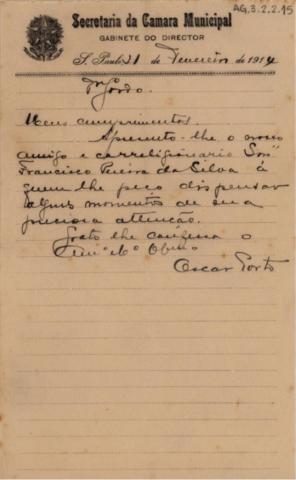 AG.3.2.2.15
Secretaria da Camara Municipal
GABINETE DO DIRECTOR
S. Paulo, 21 de Fevereiro de 1914
Dr Gordo.
Meus cumprimentos.
Apresento-lhe o nosso
amigo e correligionario Snr
Francisco Pereira da Silva á
quem lhe peço dispensar
alguns momentos de sua
preciosa attenção.
Grato lhe o
Oscar Porto